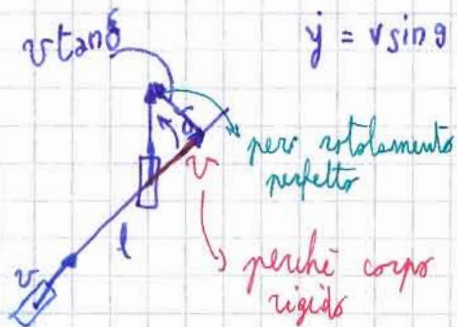 v tan δ
ẏ = v sin θ
δ
per rotolamento
perfetto
v
l
perché corpo
rigido
v